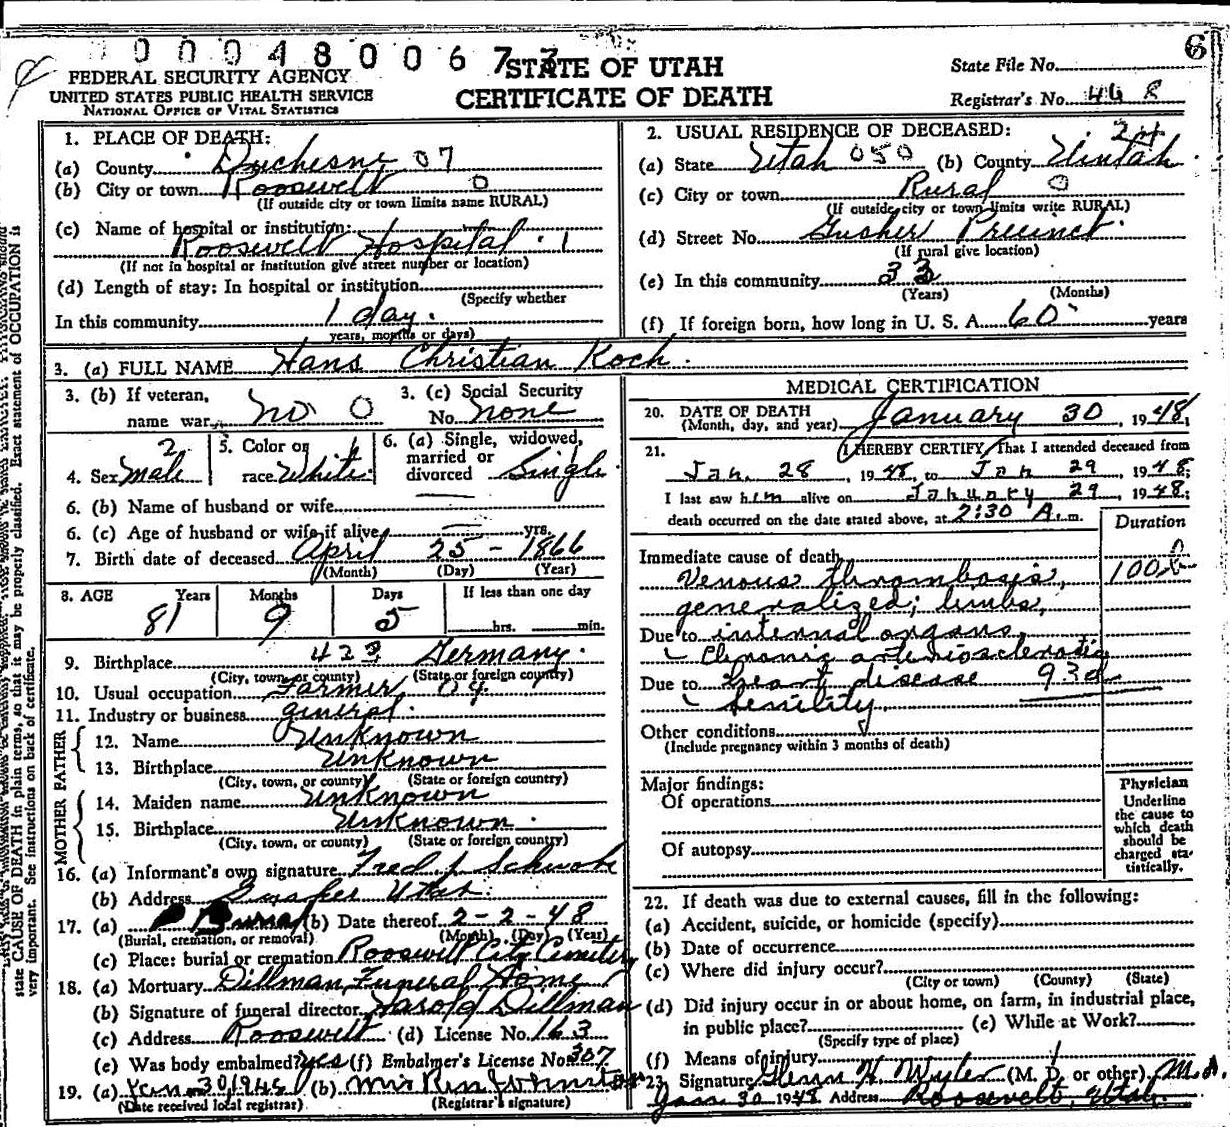 0 0 0 4 8 0 0 6 7 3
6
FEDERAL SECURITY AGENCY
UNITED STATES PUBLIC HEALTH SERVICE
NATIONAL OFFICE OF VITAL STATISTICS
STATE OF UTAH
CERTIFICATE OF DEATH
State File No.
Registrar's No. 46 8
1. PLACE OF DEATH:
(a) County Duchesne 07
(b) City or town Roosevelt 0
(If outside city or town limits name RURAL)
(c) Name of hospital or institution:
Roosevelt Hospital. 1
(If not in hospital or institution give street number or location)
(d) Length of stay: In hospital or institution
(Specify whether
In this community 1 day.
years, months or days)
2. USUAL RESIDENCE OF DECEASED: 24
(a) State Utah 050 (b) County Uintah
(c) City or town Rural 0
(If outside city or town limits write RURAL)
(d) Street No. Gusher Precinct.
(If rural give location)
(e) In this community 33
(Years) (Months)
(f) If foreign born, how long in U. S. A. 60 years
3. (a) FULL NAME Hans Christian Koch.
3. (b) If veteran,
name war no 0
3. (c) Social Security
No. none
4. Sex Male 2
5. Color or
race White 1
6. (a) Single, widowed,
married or
divorced Single
6. (b) Name of husband or wife
6. (c) Age of husband or wife if alive yrs.
7. Birth date of deceased April 25 - 1866
(Month) (Day) (Year)
8. AGE Years Months Days If less than one day
81 9 5 hrs. min.
9. Birthplace 423 Germany.
(City, town or county) (State or foreign country)
10. Usual occupation Farmer
11. Industry or business general.
FATHER
12. Name Unknown
13. Birthplace Unknown
(City, town, or county) (State or foreign country)
MOTHER
14. Maiden name Unknown
15. Birthplace Unknown.
(City, town, or county) (State or foreign country)
16. (a) Informant's own signature Fred J. Schwab
(b) Address Gusher Utah
17. (a) Burial (b) Date thereof 2-2-48
(Burial, cremation, or removal) (Month) (Day) (Year)
(c) Place: burial or cremation Roosevelt City Cemetery
18. (a) Mortuary Dillman Funeral Home
(b) Signature of funeral director Harold Dillman
(c) Address Roosevelt (d) License No. 163
(e) Was body embalmed? yes (f) Embalmer's License No. 307
19. (a) Jan 30 1948 (b) Mrs Ren Johnston
(Date received local registrar) (Registrar's signature)
MEDICAL CERTIFICATION
20. DATE OF DEATH
(Month, day, and year) January 30, 1948
21. I HEREBY CERTIFY, That I attended deceased from
Jan. 28, 1948, to Jan 29, 1948;
I last saw him alive on January 29, 1948;
death occurred on the date stated above, at 2:30 A.m.
Duration
Immediate cause of death
Venous thrombosis, 100
generalized; limbs,
Due to internal organs,
Chronic arteriosclerotic
Due to heart disease 93d
Senility
Other conditions
(Include pregnancy within 3 months of death)
Major findings:
Of operations
Of autopsy
Physician
Underline
the cause to
which death
should be
charged sta-
tistically.
22. If death was due to external causes, fill in the following:
(a) Accident, suicide, or homicide (specify)
(b) Date of occurrence
(c) Where did injury occur?
(City or town) (County) (State)
(d) Did injury occur in or about home, on farm, in industrial place,
in public place? (e) While at Work?
(Specify type of place)
(f) Means of injury
23. Signature Glenn H. Wyler (M. D. or other) M.D.
Jan 30 1948 Address Roosevelt, Utah.
state CAUSE OF DEATH in plain terms, so that it may be properly classified. Exact statement of OCCUPATION is
very important. See instructions on back of certificate.